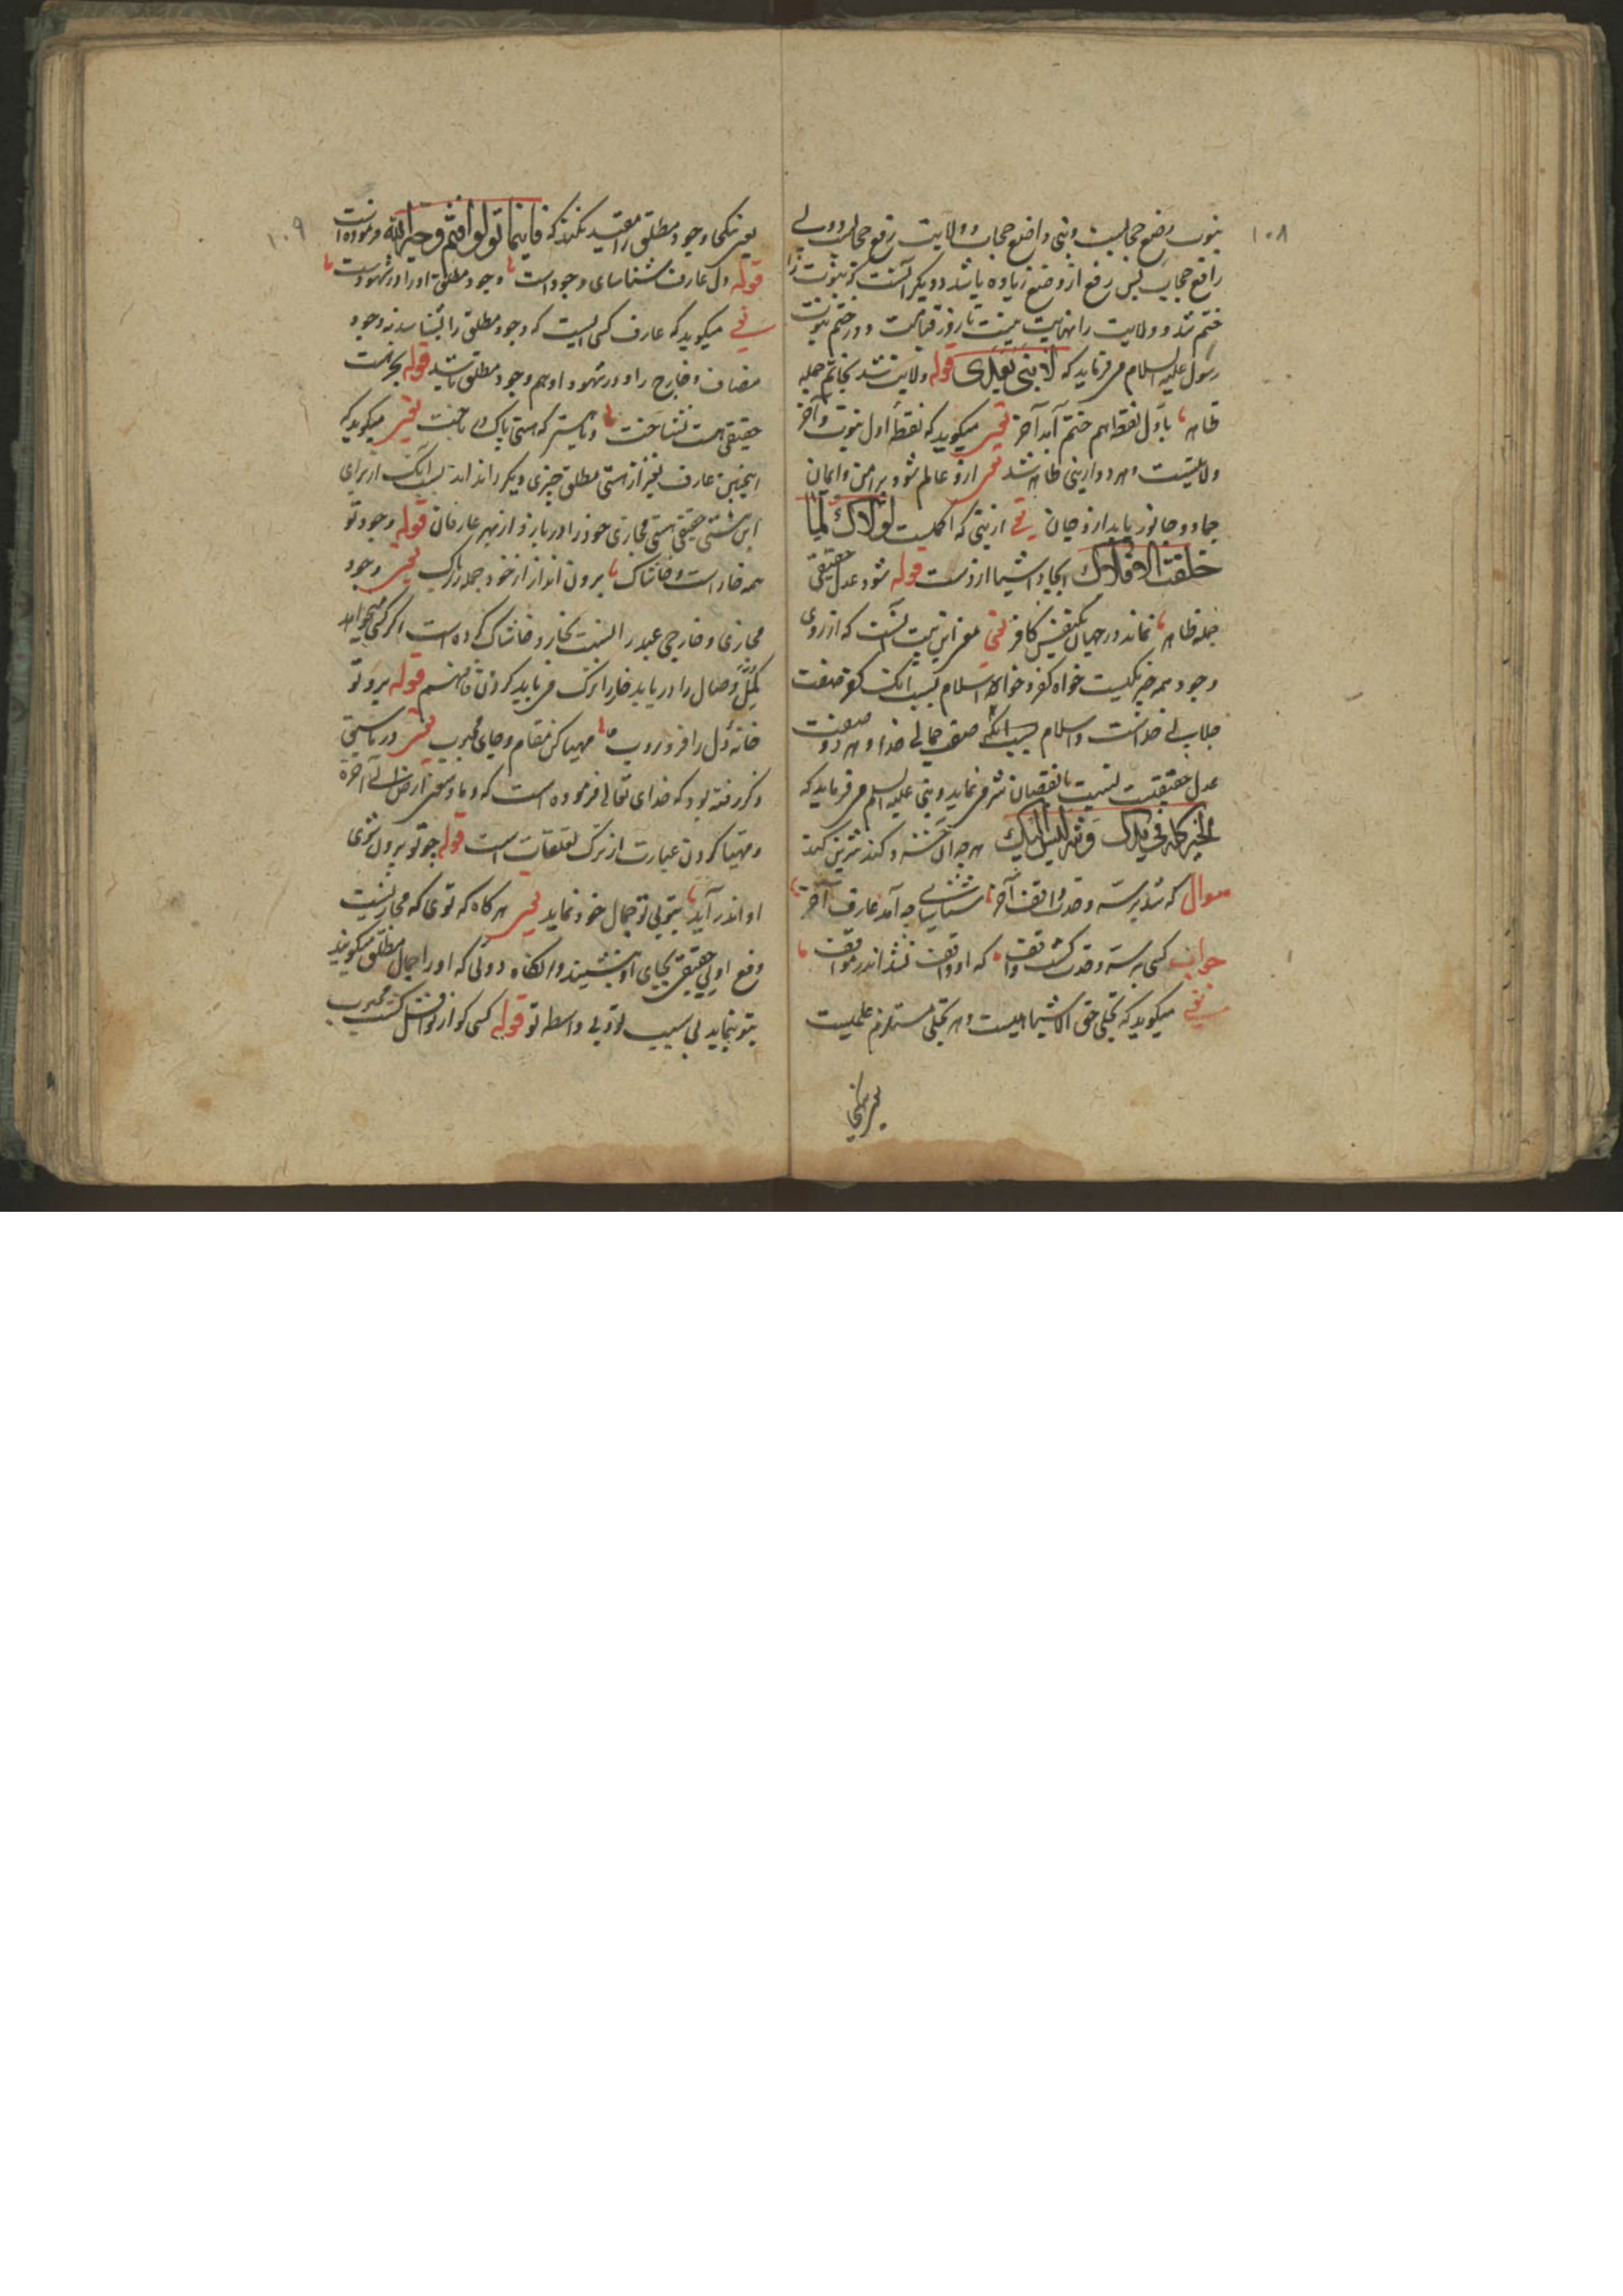 ۱۰۸
نبوت وضع حجابست و نبی واضع حجاب و ولایت رفع حجاب و ولی
رافع حجاب پس رفع از وضع زیاده باشد و دیگر آنست که نبوت را
ختم شد و ولایت را نهایت نیست تا روز قیامت و در ختم نبوت
رسول علیه السلام می فرماید که لا نبی بعدی قوله ولایت شد بخاتم جمله
ظاهر باول نقطه هم ختم آمد آخر یعنی میگوید که نقطه اول نبوت و آخر
ولایتست و هر دو از نبی ظاهر شد یعنی ازو عالم شود پر امن و ایمان
جماد و جانور یابد ازو جان یعنی از نبی که اکملست لولاک لما
خلقت الافلاک ایجاد اشیا ازوست قوله شود عدل حقیقی
جمله ظاهر نماند در جهان یکنفس کافر یعنی معنی این بیت آنست که از روی
وجود همه چیز یکیست خواه کفر و خواه اسلام بسبب آنکه کفر صفت
جلالی خداست و اسلام بسبب آنکه صفت جمالی خدا و هر دو صفت
عدل حقیقتست نسبت با نقصان شر می نماید و نبی علیه السلام می فرماید که
الخیر کله فی یدک و شر لیس الیک هر چه آن خسرو کند شیرین کند
سوال که شد بر سر وحدت واقف آخر شناسای چه آمد عارف آخر
جواب کسی بر سر وحدت گشت واقف که او واقف نشد اندر مواقف
یعنی میگوید که تجلی حق الاشیا هست و هر تجلی مستلزم علمیست
۱۰۹
یعنی یکجا وجود مطلق را مقید نکند که فاینما تولوا فثم وجه الله فرموده است
قوله دل عارف شناسای وجود است وجود مطلق او را در شهود است
یعنی میگوید که عارف کسی است که وجود مطلق را بشناسد نه وجود
مضاف و خارج را و در شهود او هم وجود مطلق باشد قوله بجز هست
حقیقی هست نشناخت و یا هستی که هستی پاک در باخت یعنی میگوید که
اینچنین عارف بغیر از هستی مطلق چیزی دیگر را نداند بسبب آنکه از برای
این هستی حقیقی هستی مجازی خود را در بازد از بهر عارفان قوله وجود تو
همه خار است و خاشاک برون انداز از خود جمله را پاک یعنی وجود
مجازی و خارجی عبد را نسبت بخار و خاشاک کرده است اگر کسی میخواهد
گل وصال را دریابد خار را ترک می باید کردن فافهم قوله برو تو
خانه دل را فرو روب مهیا کن مقام و جای محبوب یعنی در ماسبق
ذکر رفته بود که خدای تعالی فرموده است که و ما وسعنی ارضی الی آخره
و مهیا کردن عبارت از ترک تعلقات است قوله چو تو برون شوی
او اندر آید بتو بی تو جمال خود نماید یعنی هر گاه که توی که مجازیست
رفع اوی حقیقی بجای او بنشیند و آنگاه دوئی که او را جمال مطلق میگویند
بتو بنماید بی سبب تو و بی واسطه تو قوله کسی کو از نوافل گشت محبوب